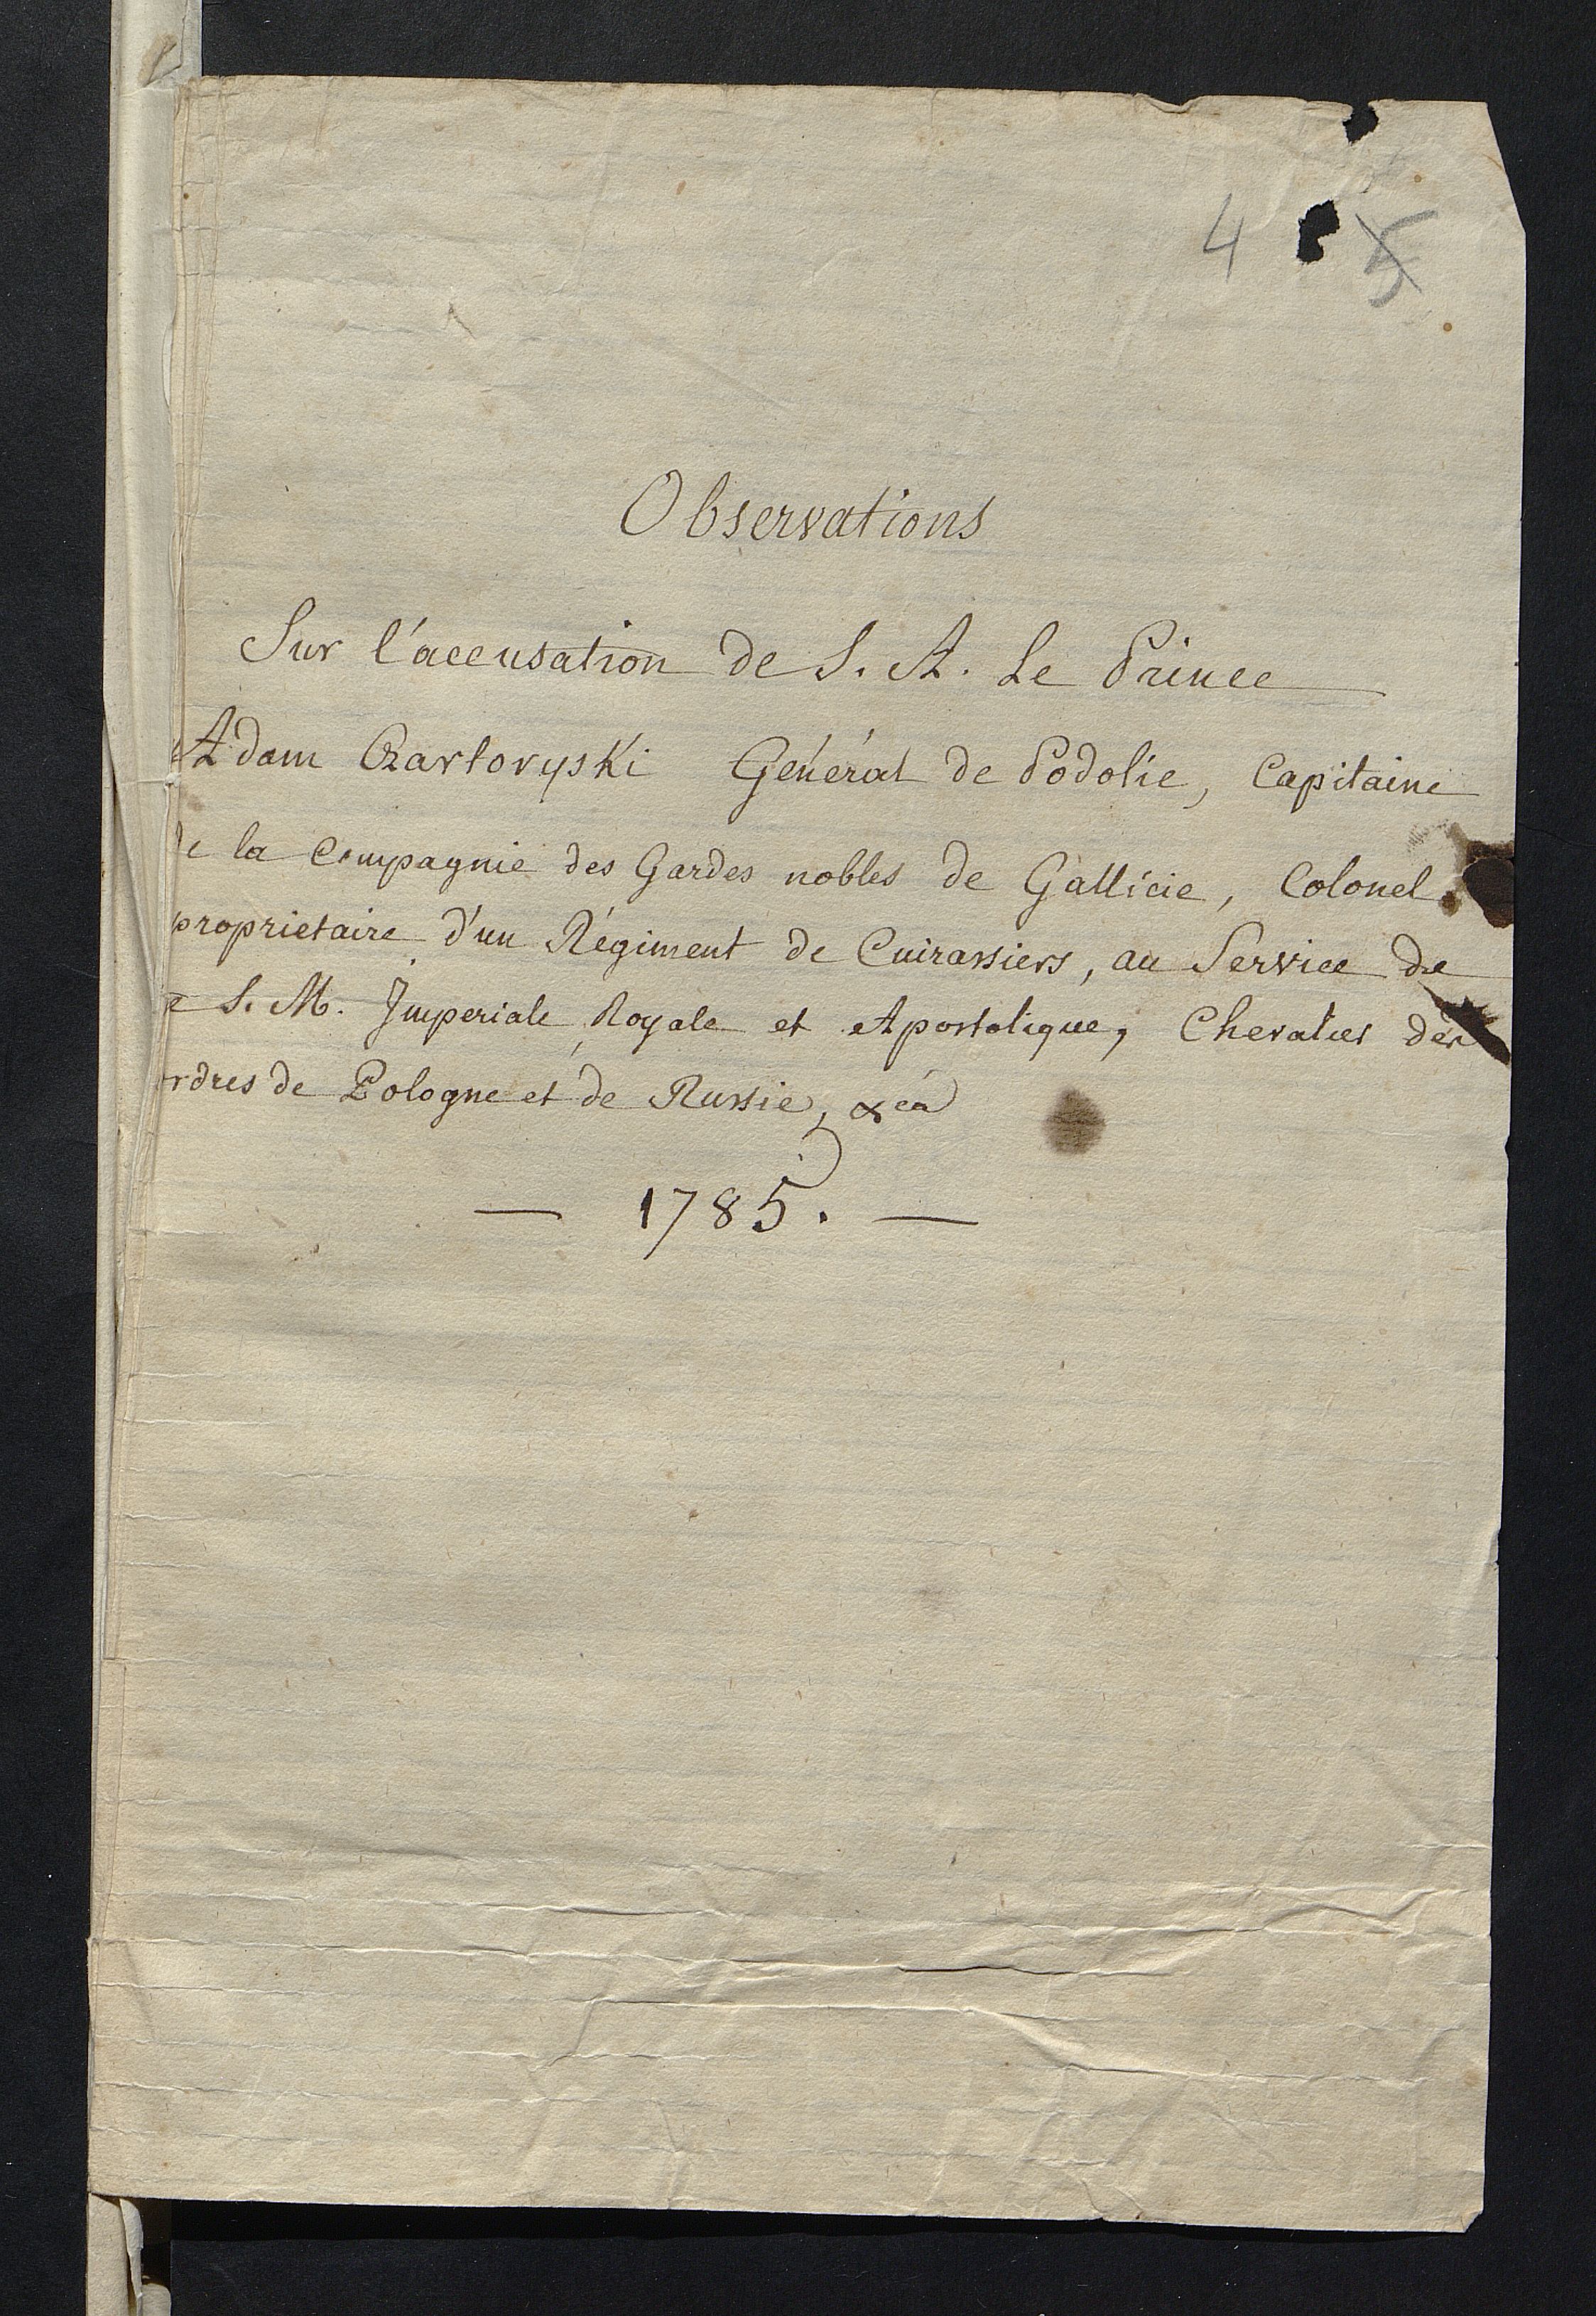 4 5
Observations
Sur l'accusation de S. A. Le Prince
Adam Czartoryski Général de Podolie, Capitaine
de la Compagnie des Gardes nobles de Gallicie, Colonel
proprietaire d'un Régiment de Cuirassiers, au Service de
S. M. Imperiale Royale et Apostolique, Chevalier des
rdres de Pologne et de Russie, &ca
— 1785. —